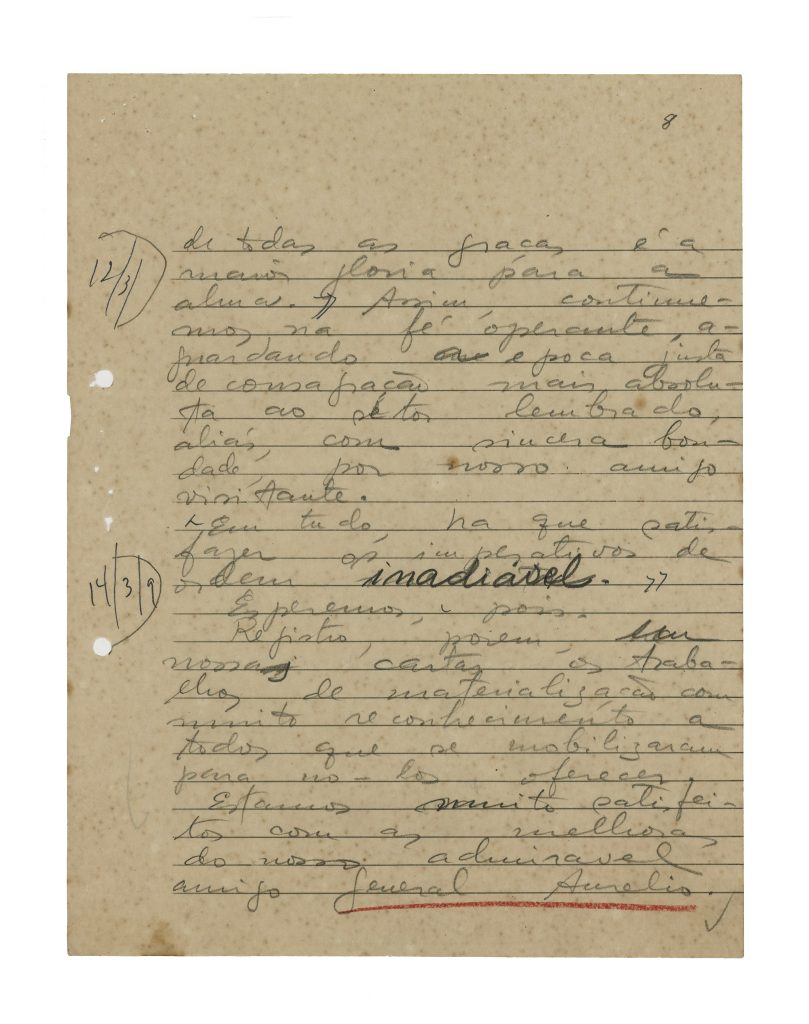 8
de todas as graças é a
12/3/
maior gloria para a
alma. » Assim, continue-
mos na fé operante, a-
guardando a epoca justa
de consagração mais absolu-
ta ao setor lembrado,
aliás, com sincera bon-
dade, por nosso amigo
visitante.
"Em tudo, ha que satis-
fazer os imperativos de
14/3/9
ordem inadiável. »
Esperemos, pois.
Registro, porém, em
nossas cartas os traba-
lhos de materialização com
muito reconhecimento a
todos que se mobilizaram
para no-los oferecer.
Estamos muito satisfei-
tos com as melhoras
do nosso admiravel
amigo General Aurelio.